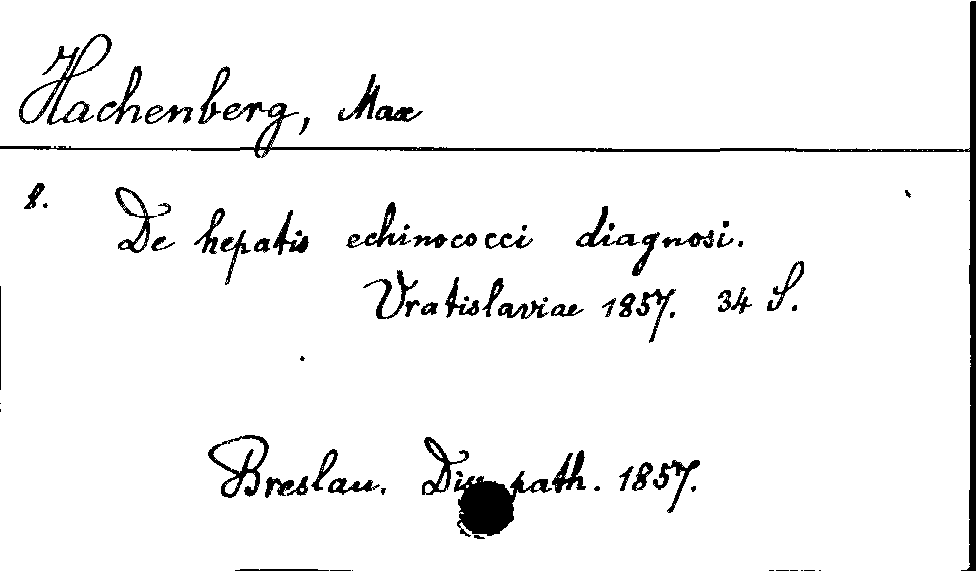 Hachenberg, Max
8.
De hepatis echinococci diagnosi.
Vratislaviae 1857. 34 S.
Breslau. Diss. path. 1857.